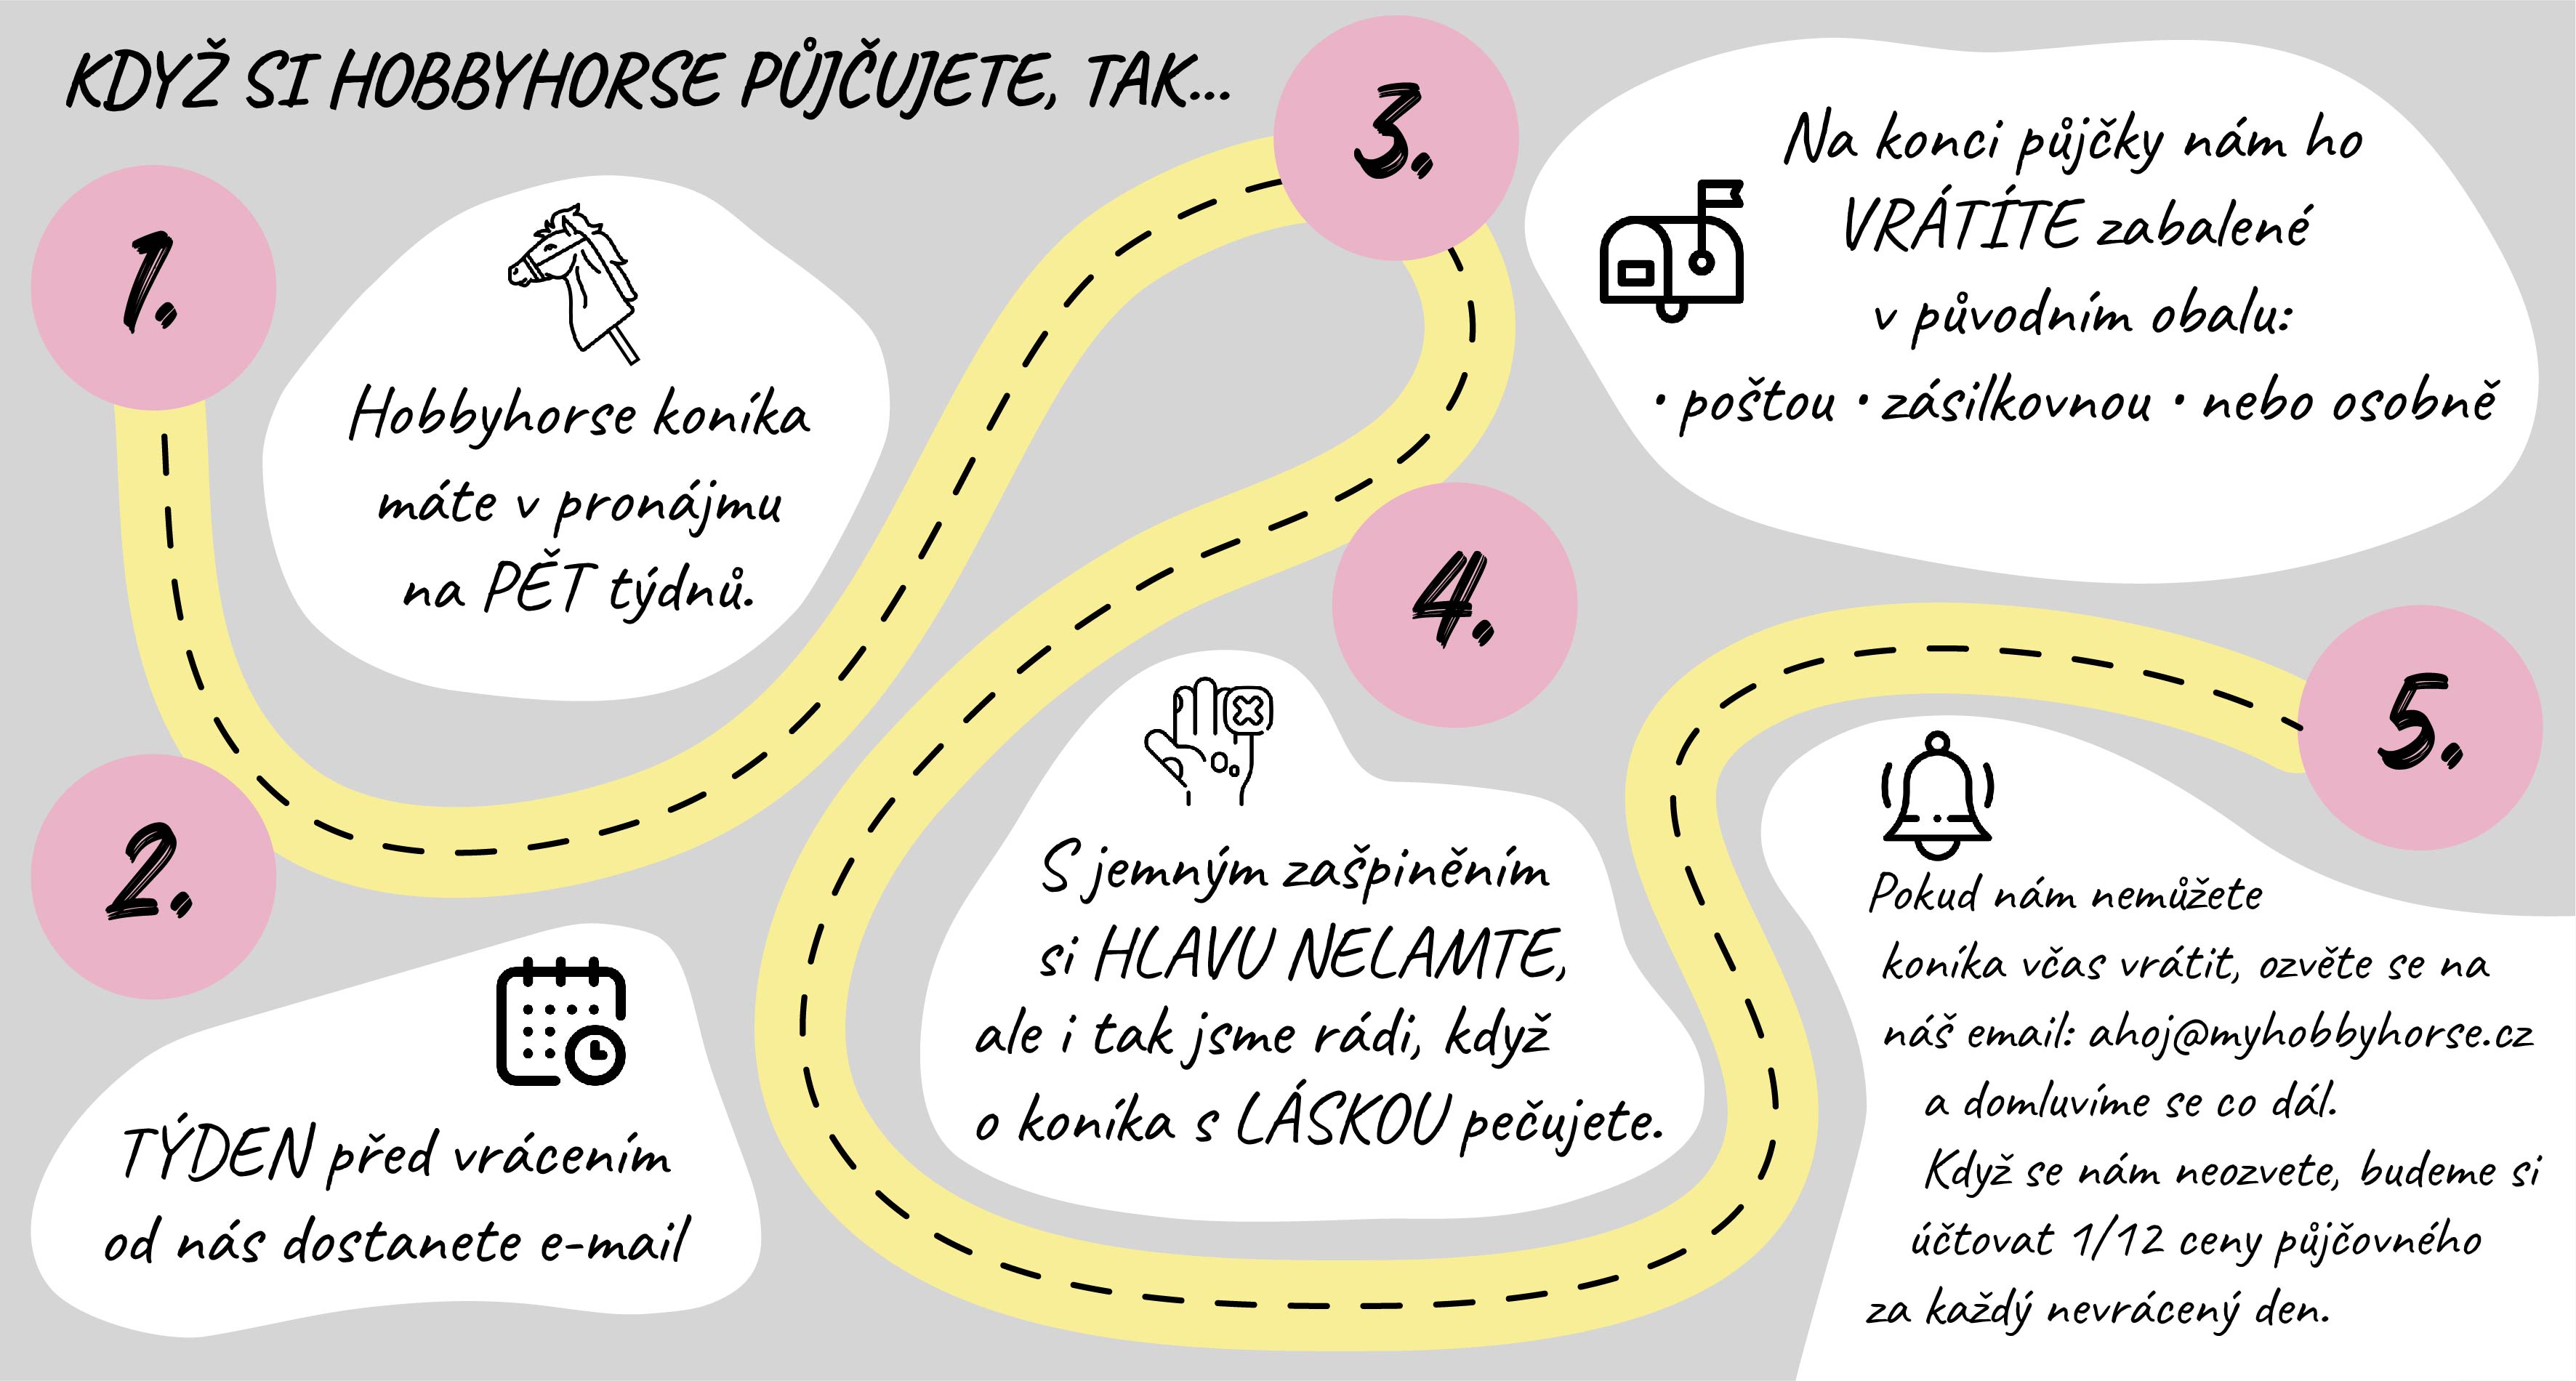 KDYŽ SI HOBBYHORSE PŮJČUJETE, TAK...
1.
Hobbyhorse koníka
máte v pronájmu
na PĚT týdnů.
2.
TÝDEN před vrácením
od nás dostanete e-mail
3.
Na konci půjčky nám ho
VRÁTÍTE zabalené
v původním obalu:
• poštou • zásilkovnou • nebo osobně
4.
S jemným zašpiněním
si HLAVU NELAMTE,
ale i tak jsme rádi, když
o koníka s LÁSKOU pečujete.
5.
Pokud nám nemůžete
koníka včas vrátit, ozvěte se na
náš email: ahoj@myhobbyhorse.cz
a domluvíme se co dál.
Když se nám neozvete, budeme si
účtovat 1/12 ceny půjčovného
za každý nevrácený den.